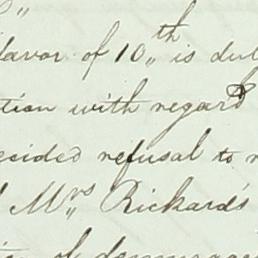 favor of 10th is du
tion with regard
ecided refusal to
Mrs Rickard's
of